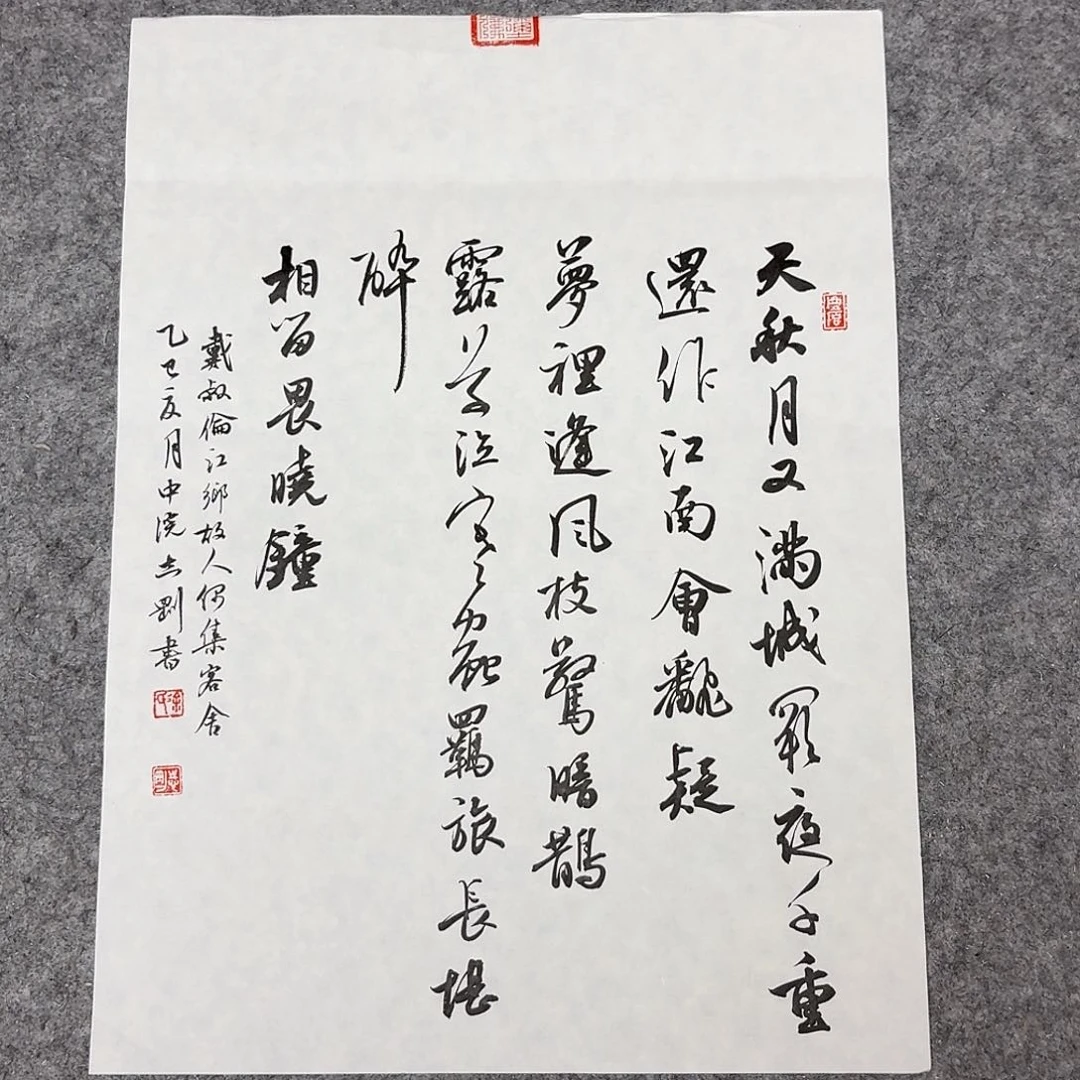 天秋月又滿城闕夜千重
還作江南會飜疑
夢裡逢風枝驚暗鵲
露草泣寒蟲羈旅長堪
醉
相留畏曉鐘
戴叔倫江鄉故人偶集客舍
乙巳夏月中浣志剛書